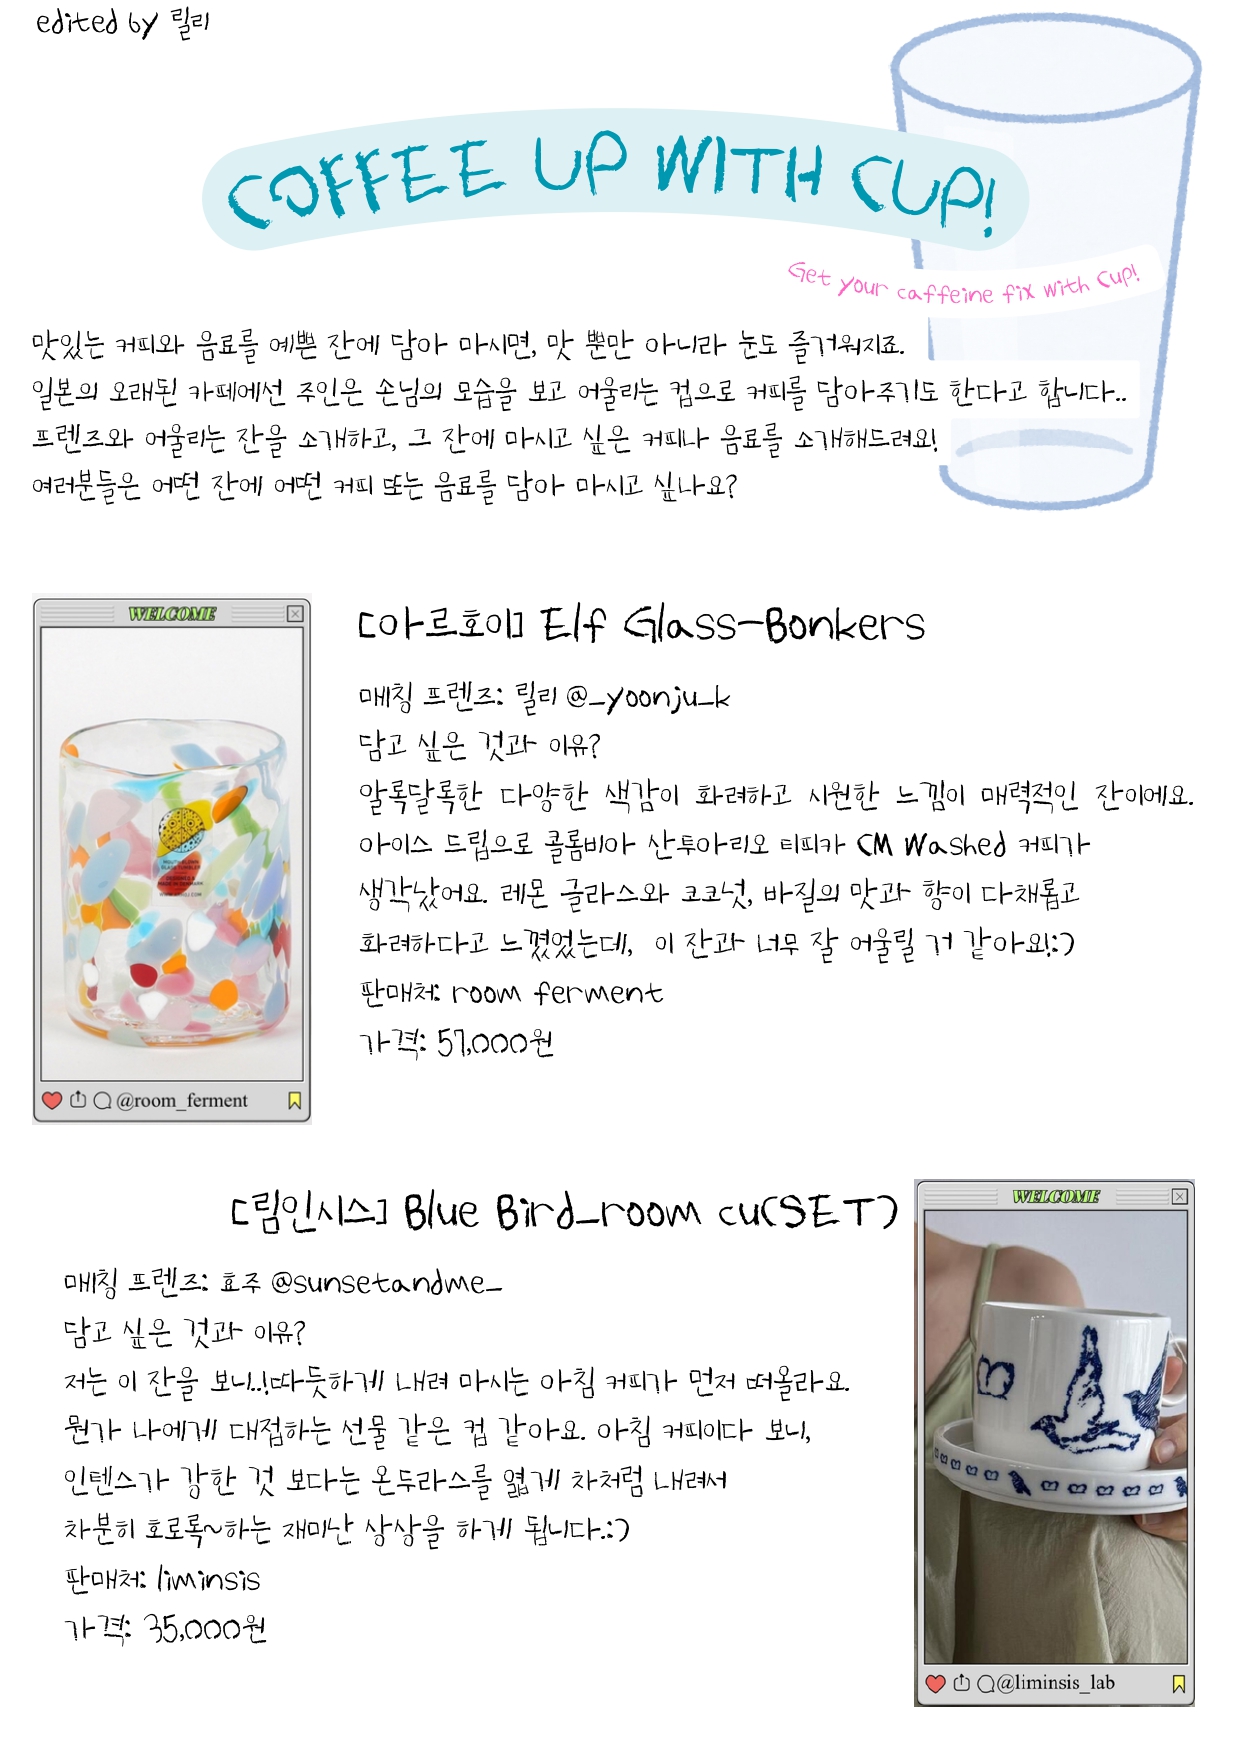 edited by 릴리
COFFEE UP WITH CUP!
Get your caffeine fix with Cup!
맛있는 커피와 음료를 예쁜 잔에 담아 마시면, 맛 뿐만 아니라 눈도 즐거워지죠.
일본의 오래된 카페에선 주인은 손님의 모습을 보고 어울리는 컵으로 커피를 담아주기도 한다고 합니다..
프렌즈와 어울리는 잔을 소개하고, 그 잔에 마시고 싶은 커피나 음료를 소개해드려요!
여러분들은 어떤 잔에 어떤 커피 또는 음료를 담아 마시고 싶나요?
WELCOME
[아르호이] Elf Glass-Bonkers
매칭 프렌즈: 릴리 @_yoonju_k
담고 싶은 것과 이유?
알록달록한 다양한 색감이 화려하고 시원한 느낌이 매력적인 잔이에요.
아이스 드립으로 콜롬비아 산투아리오 티피카 CM Washed 커피가
생각났어요. 레몬 글라스와 코코넛, 바질의 맛과 향이 다채롭고
화려하다고 느꼈었는데, 이 잔과 너무 잘 어울릴 거 같아요!:)
판매처: room ferment
가격: 57,000원
MOUTH BLOWN
GLASS TUMBLER
DESIGNED &
MADE IN DENMARK
@room_ferment
[림인시스] Blue Bird_room cu(SET)
매칭 프렌즈: 효주 @sunsetandme_
담고 싶은 것과 이유?
저는 이 잔을 보니..!따듯하게 내려 마시는 아침 커피가 먼저 떠올라요.
뭔가 나에게 대접하는 선물 같은 컵 같아요. 아침 커피이다 보니,
인텐스가 강한 것 보다는 온두라스를 엷게 차처럼 내려서
차분히 호로록~하는 재미난 상상을 하게 됩니다.:)
판매처: liminsis
가격: 35,000원
WELCOME
@liminsis_lab